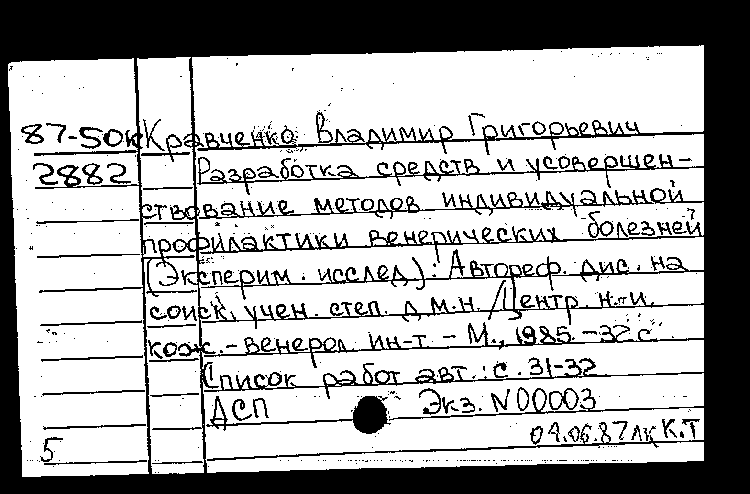 87-50к Кравченко Владимир Григорьевич
2882 Разработка средств и усовершен-
ствование методов индивидуальной
профилактики венерических болезней
(Эксперим. исслед.): Автореф. дис. на
соиск. учен. степ. д.м.н. / Центр. н.-и.
кож.-венерол. ин-т. - М., 1985. - 32 с.
Список работ авт.: с. 31-32.
ДСП Экз. N 00003
04.06.87 лк К.Т
5